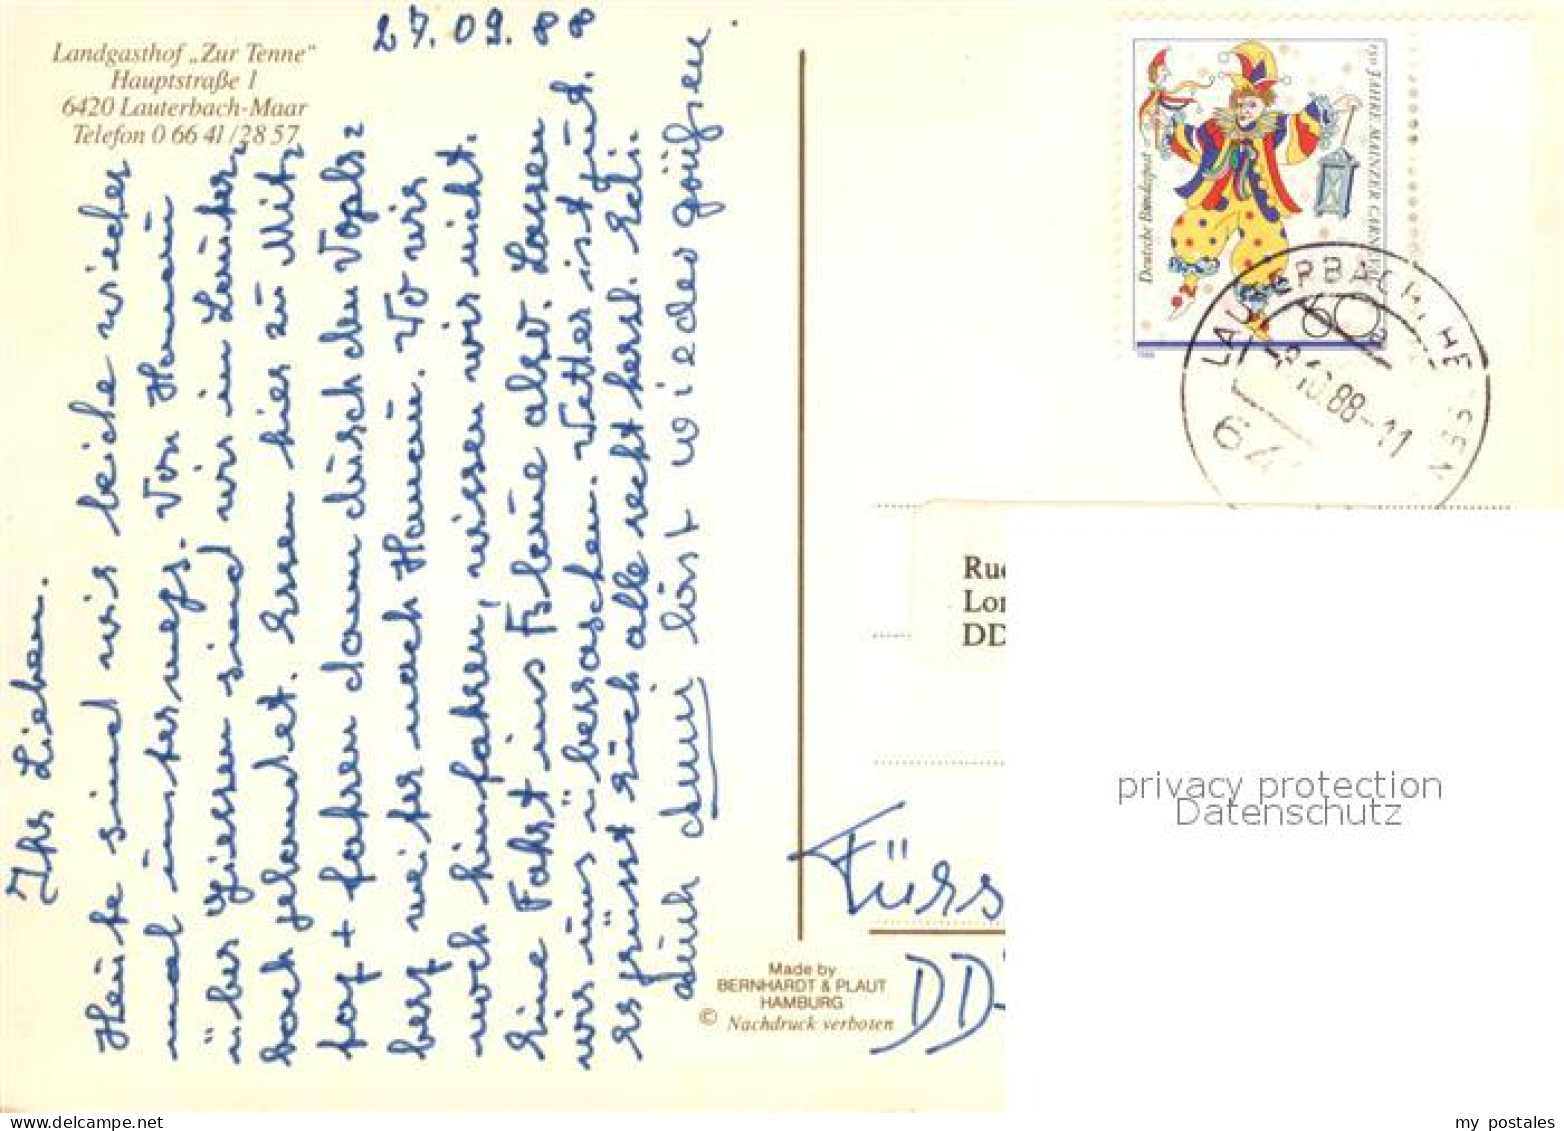 Landgasthof „Zur Tenne“
Hauptstraße 1
6420 Lauterbach-Maar
Telefon 0 66 41/28 57
27.09.88
Ihr Lieben.
Heute sind wir beide wieder
mal unterwegs. Von Hanau
über Giessen sind wir in Lauter=
bach gelandet. Essen hier zu Mit=
tag + fahren dann durch den Vogls=
berg weiter nach Hanau. Wo wir
noch hinfahren, wissen wir nicht.
Eine Fahrt ins Blaue also. Lassen
wir uns überraschen. Wetter ist gut.
Es grüsst Euch alle recht herzl. Eeli.
Auch läst wieder grüßen.
Deutsche Bundespost
150 JAHRE MAINZER CARNEVAL
60
1988
LAUTERBACH, HESSEN
10.88-11
64
DD
Fürs
DD-
Made by
BERNHARDT & PLAUT
HAMBURG
© Nachdruck verboten
privacy protection
Datenschutz
my postales